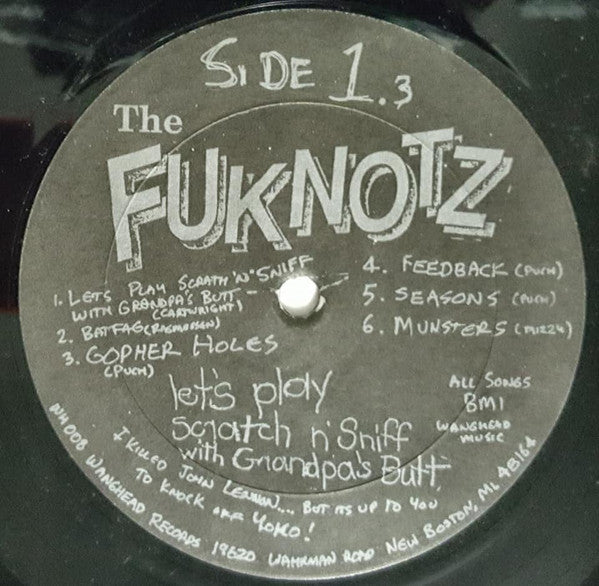 SIDE 1.3
The
FUKNOTZ
1. LETS PLAY SCRATH 'N' SNIFF
WITH GRANDPA'S BUTT
(CARTWRIGHT)
2. BATFAG (RASMUSSEN)
3. GOPHER HOLES
(PUCH)
4. FEEDBACK (PUCH)
5. SEASONS (PUCH)
6. MUNSTERS (MIZZY)
let's play
scratch n' Sniff
with Grandpa's Butt
ALL SONGS
BMI
WANGHEAD
MUSIC
I KILLED JOHN LENNON.... BUT ITS UP TO YOU
TO KNOCK OFF YOKO!
NH008 WANGHEAD RECORDS 19620 WAHRMAN ROAD NEW BOSTON, MI. 48164